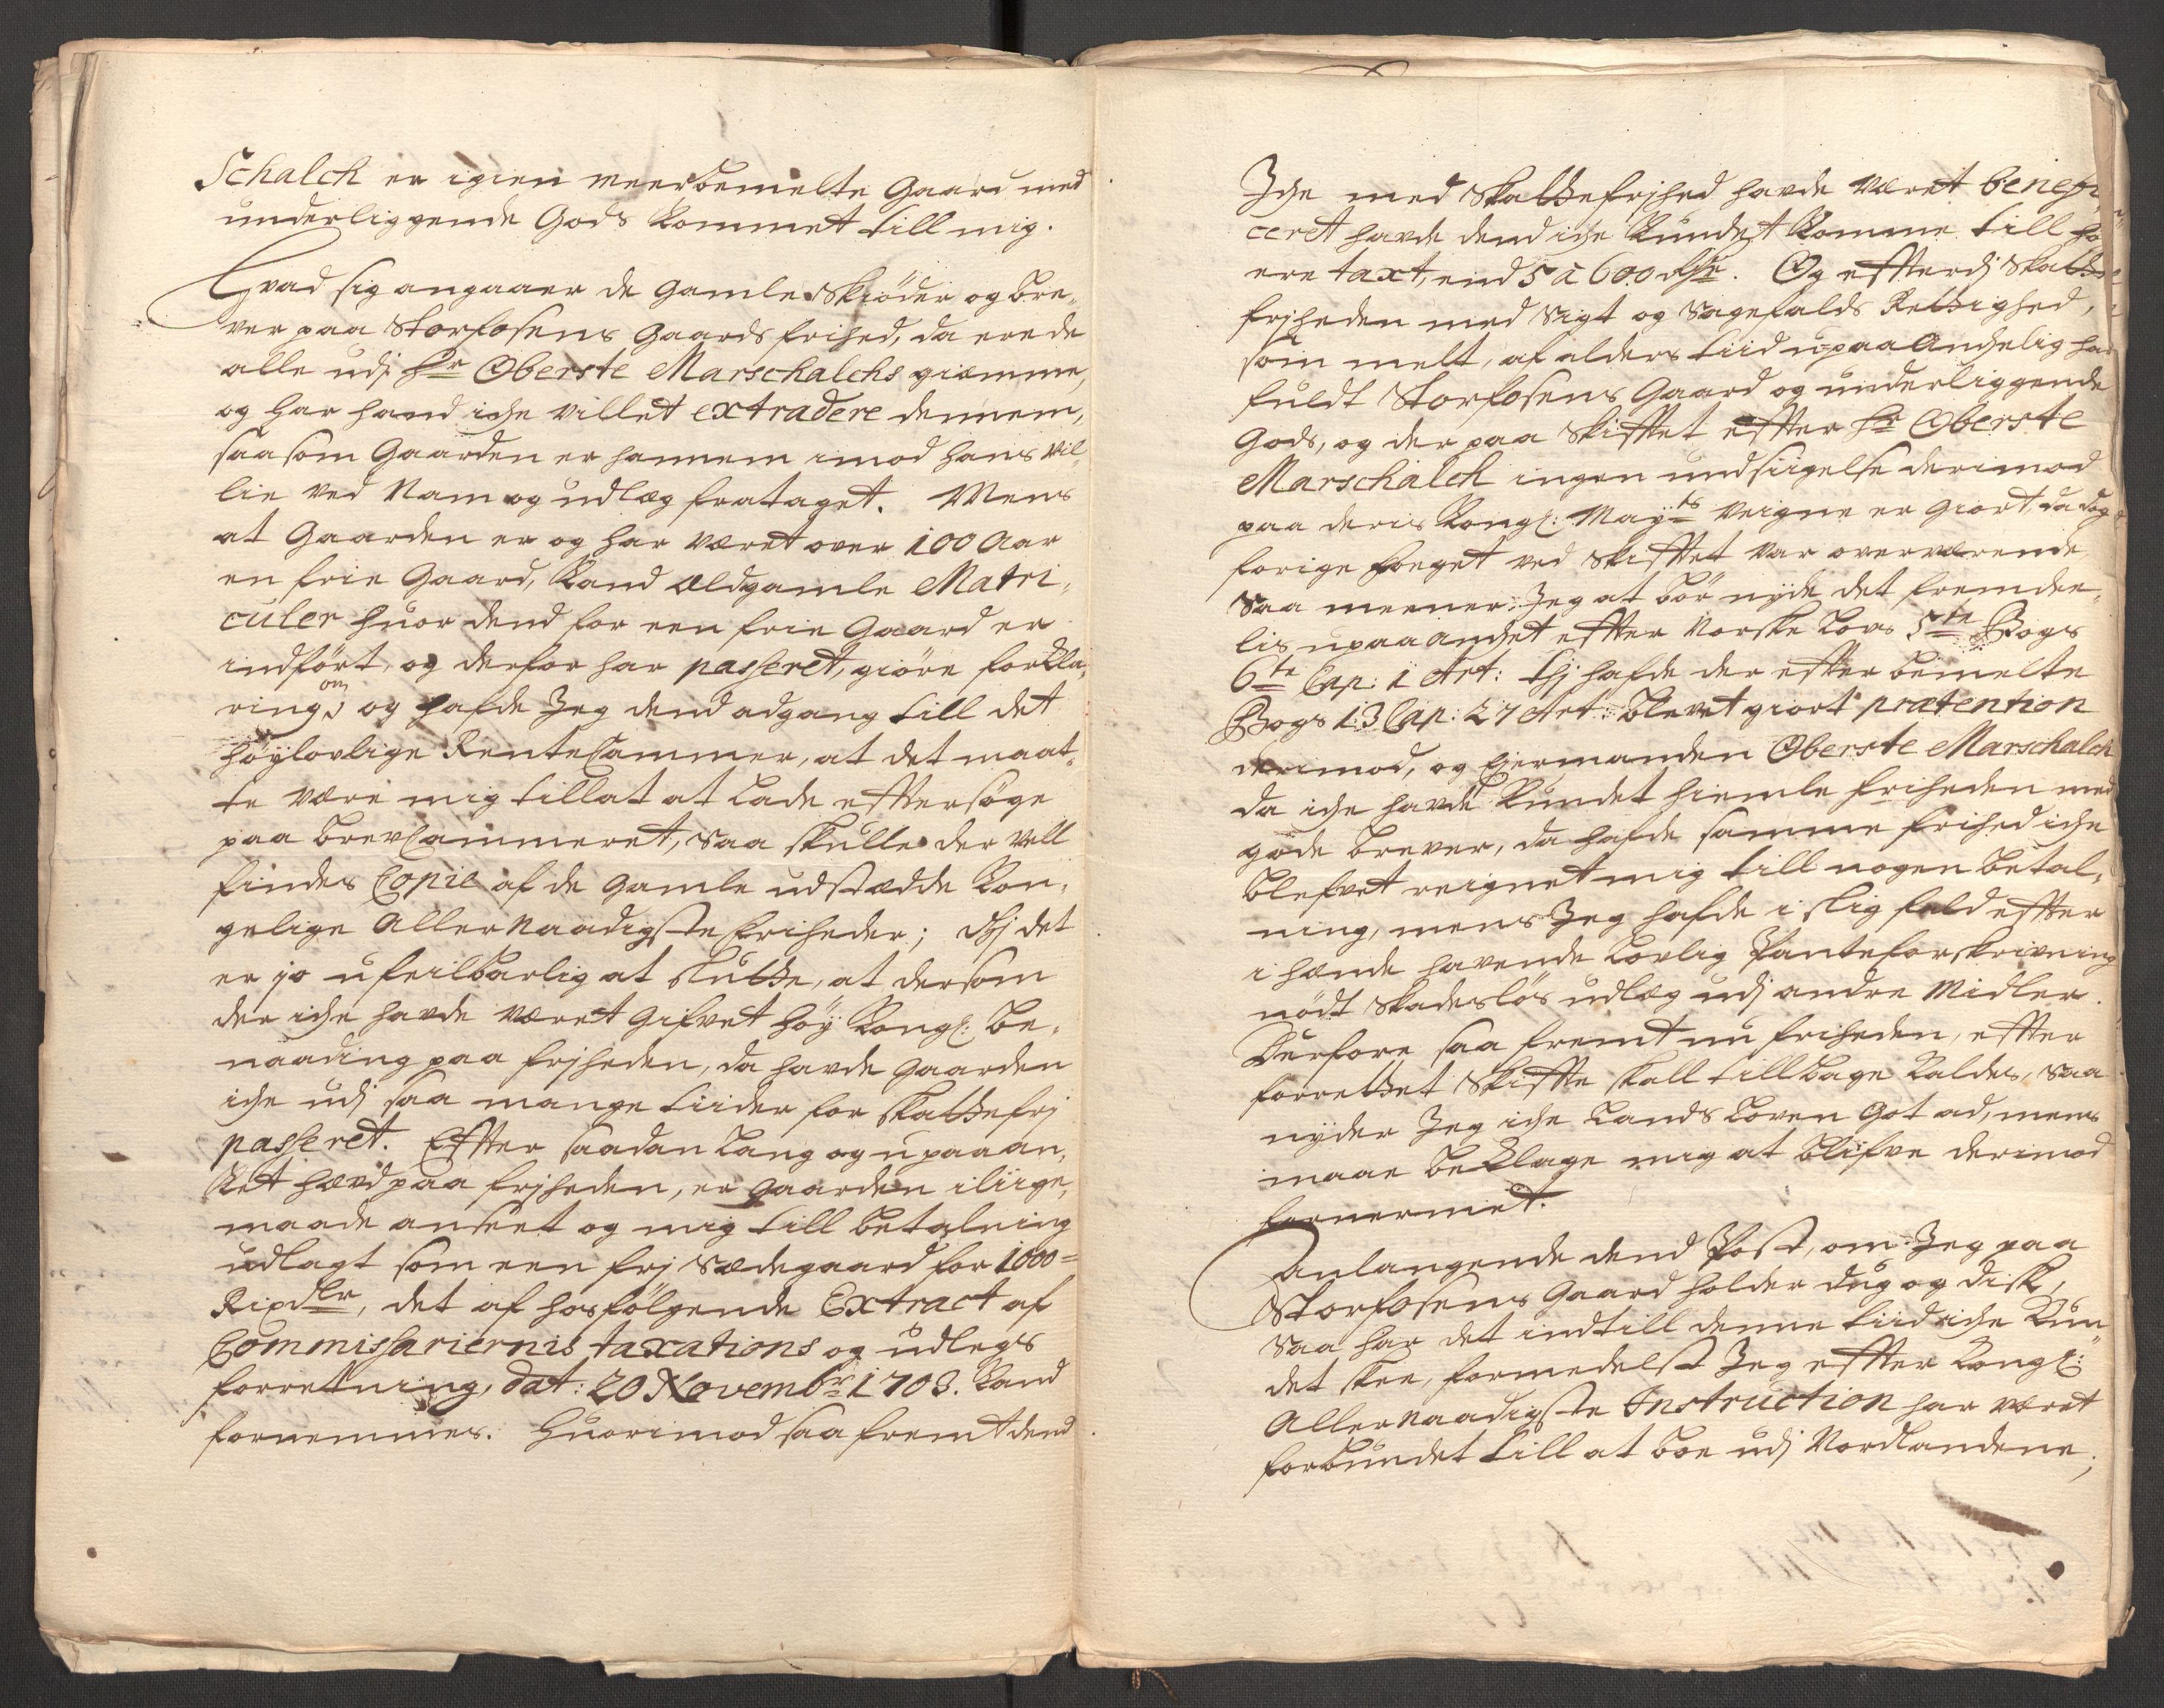 Schalch er igien meerbemelte Gaard med
underliggende Gods kommet till mig.
Hvad sig angaaer de gamle Skiöder og bre-
ver paa Storfosens Gaards frihed, da ere de
alle udj Hr Oberste Marschalchs giemme,
og har hand iche villet extradere dennem,
saasom Gaarden er hannem imod hans vil-
lie ved Nam og udlæg frataget. Mens
at Gaarden er og har været over 100 Aar
en frie Gaard, kand ældgamle Matri-
culer huor dend for een frie Gaard er
indført, og derfor har passeret, giöre forkla-
ring om, og hafde Jeg dend adgang till det
höylovlige RenteCammer, at det maat-
te være mig tillat at lade eftersöge
paa brevCammeret, saa skulle der vell
findes Copie af de gamle udstædde Kon-
gelige Allernaadigste friheder; thj det
er jo ufeilbarlig at slutte, at dersom
der iche havde været gifvet höy Kongl: be-
naading paa frjheden, da havde gaarden
iche udj saa mange tiider for skattefrj
passeret. Efter saadan lang og upaaan-
ket hævd paa frjheden, er gaarden iliige-
maade anseet og mig till betalning
udlagt som een frj sædegaard for 1000=
Rixdlr, det af hosfölgende Extract af
Commissariernis taxations og udlegs
forretning, dat: 20 Novembr 1703. kand
fornemmes. Huorimod saafremt dend
Iche med skattefrjhed havde været benefi-
ceret havde dend iche kundet komme till hö-
ere taxt, end 5 à 600 rdr. Og efterdj skatte
frjheden med Sigt og Sagefalds Rettighed,
som melt, af alders tiid upaaanchelig har
fuldt Storfosens Gaard og underliggende
Gods, og der paa skiftet efter Hr Oberste
Marschalch ingen undsiigelse derimod
paa deris Kongl: Mayts veigne er giort, da dog
forige foeget ved skiftet var overværende
Saa meener Jeg at bör nyde det fremdee-
lis upaaanchet efter Norske Lovs 5te Bogs
6te Cap: 1 Art: thj hafde der efter bemelte
Bogs 13 Cap: 27 Art: blevet giort prætention
derimod, og Eyermanden Oberste Marschalch
da iche havde kundet hiemle friheden med
gode brever, da hafde samme frihed iche
blefvet reignet mig till nogen betal-
ning, mens Jeg hafde i slig fald efter
i hænde havende lovlig Panteforskrivning
nödt skadeslös udlæg udj andre Midler.
Durfore saa fremt nu friheden, efter
forrettet skifte skall tillbage kaldes, saa
nyder Jeg iche Lands Loven got ad, mens
maae beklage mig at blifve derimod
fornermet.
Anlangende dend Post, om Jeg paa
Storfosens Gaard holder dug og disk,
saa har det indtill denne tiid iche kun-
det skee, formedelst Jeg efter Kongl:
Allernaadigste Instruction har været
forbundet till at boe udj Nordlandene,